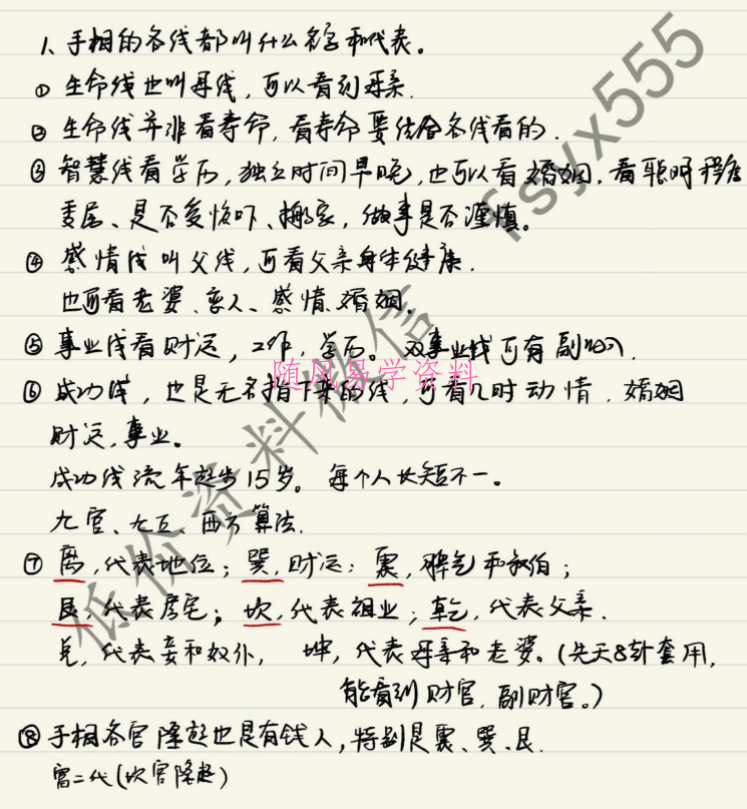 1、手相的各线都叫什么名字和代表。
① 生命线也叫母线，可以看到母亲.
② 生命线并非看寿命，看寿命要结合各线看的.
③ 智慧线看学历，独立时间早晚，也可以看婚姻，看聪明程度
是否受惊吓、搬家，做事是否谨慎。
④ 感情线叫父线，可看父亲身体健康.
也可看老婆、恋人、感情、婚姻。
⑤ 事业线看财运，工作，学历。双事业线可有副业.
⑥ 成功线，也是无名指下来的线，可看几时动情，婚姻
财运，事业。
成功线流年起步15岁。每个人长短不一。
九宫、七五、西方算法.
⑦ 离，代表地位；巽，财运；震，脾气和叔伯；
艮，代表房宅；坎，代表祖业；乾，代表父亲.
兑，代表妾和奴仆，坤，代表母亲和老婆。(先天8卦套用，
能看到财官，副财官。)
⑧ 手相各宫隆起也是有钱人，特别是震、巽、艮.
富二代(坎宫隆起)
低价资料微信fsyx555
随风易学资料